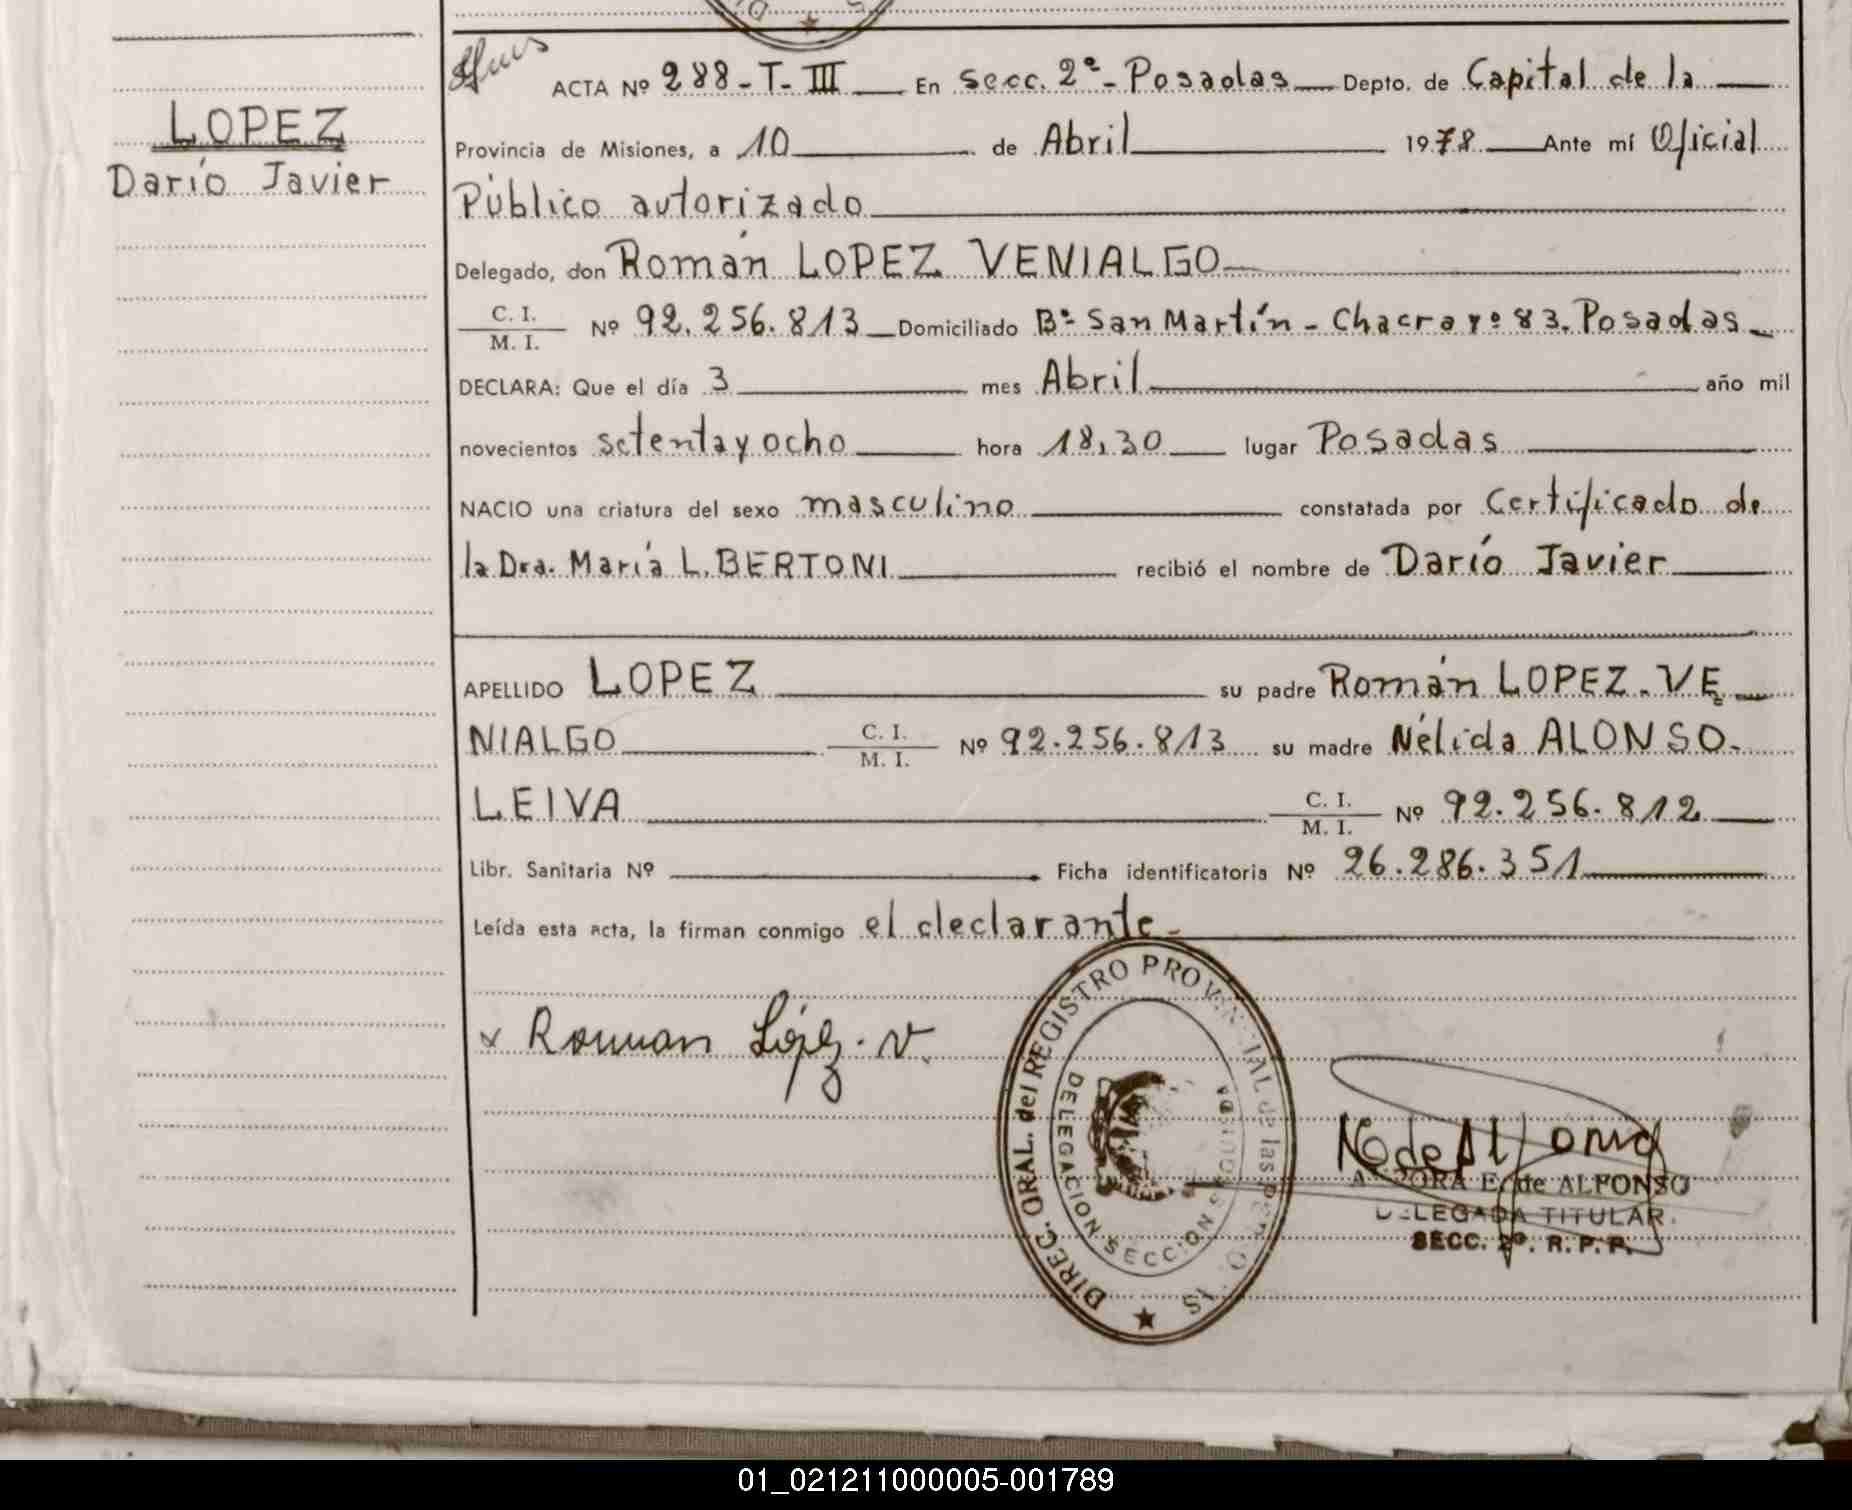 LOPEZ
Darío Javier
ACTA Nº 288-T-III En secc. 2ª- Posadas Depto. de Capital de la
Provincia de Misiones, a 10 de Abril 1978 Ante mí Oficial
Público autorizado
Delegado, don Román LOPEZ VENIALGO
C. I.
M. I.
Nº 92.256.813 Domiciliado Bº San Martín - Chacra nº 83. Posadas
DECLARA: Que el día 3 mes Abril año mil
novecientos setenta y ocho hora 18,30 lugar Posadas
NACIO una criatura del sexo masculino constatada por Certificado de
la Dra. María L. BERTONI recibió el nombre de Darío Javier
APELLIDO LOPEZ su padre Román LOPEZ VE
NIALGO C. I. M. I. Nº 92.256.813 su madre Nélida ALONSO
LEIVA C. I. M. I. Nº 92.256.812
Libr. Sanitaria Nº Ficha identificatoria Nº 26.286.351
Leída esta acta, la firman conmigo el declarante
x Roman López. V.
DIREC. GRAL. del REGISTRO PROVINCIAL de las
DELEGACION SECCION
N de Alfonso
E. de ALFONSO
DELEGADA TITULAR
SECC. 2º. R. P. P.
01_021211000005-001789